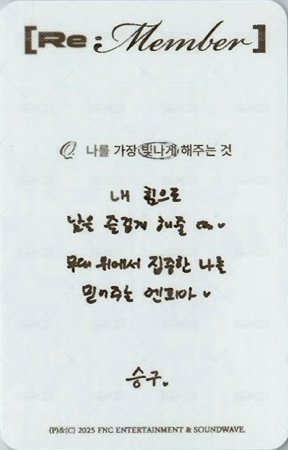 [Re:Member]
Q. 나를 가장 빛나게 해주는 것
내 힘으로
남을 즐겁게 해줄 때~
무대 위에서 집중한 나를
믿어주는 엔피아♥
승구.
(P)&(C) 2025 FNC ENTERTAINMENT & SOUNDWAVE.